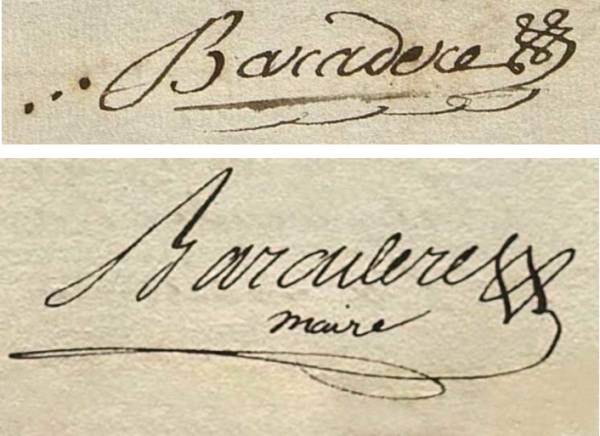 ... Baradere
Baradere
maire